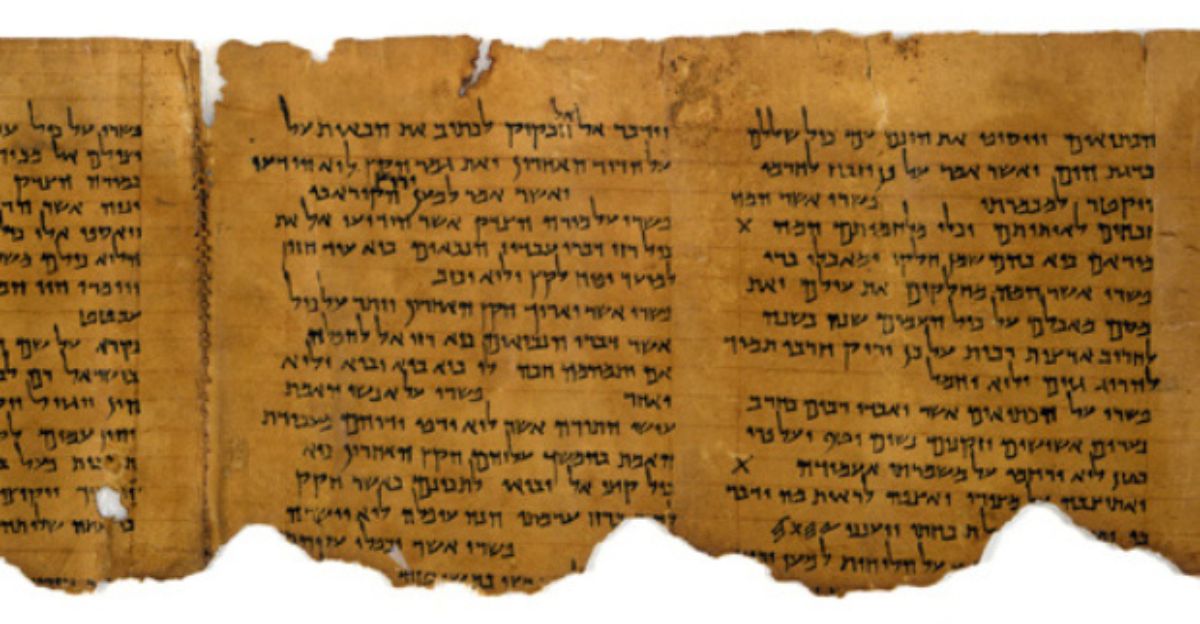 הכתיאים ויוסיפו את הונם עם כול שללם
כדגת הים ואשר אמר על כן יזבח לחרמו
ויקטר למכמרתו פשרו אשר המה
זבחים לאותותם וכלי מלחמותם המה X
מוראם כיא בהם שמן חלקו ומאכלו ברי
פשרו אשר המה מחלקים את עולם ואת
מסם מאכלם על כול העמים שנה בשנה
לחריב ארצות רבות על כן יריק חרבו תמיד
להרוג גוים ולוא יחמל
פשרו על הכתיאים אשר יאבדו רבים בחרב
נערים אשישים וזקנים נשים וטף ועל פרי
בטן לוא ירחמו על משמרתי אעמודה X
ואתיצבה על מצורי ואצפה לראות מה ידבר
בי תוכחתי ויענני 𐤉𐤄𐤅𐤄
על הלוחות למען
וידבר אל אל חבקוק לכתוב את הבאות על
על הדור האחרון ואת גמר הקץ לוא הודעו
ואשר אמר למען ירוץ הקורא בו
פשרו על מורה הצדק אשר הודיעו אל את
כול רזי דברי עבדיו הנבאים כיא עוד חזון
למועד יפח לקץ ולוא יכזב
פשרו אשר יארוך הקץ האחרון ויתר על כול
אשר דברו הנביאים כיא רזי אל להפלה
אם יתמהמה חכה לו כיא בוא יבוא ולוא
יאחר פשרו על אנשי האמת
עושי התורה אשר לוא ירפו ידיהם מעבודת
האמת בהמשך עליהם הקץ האחרון כיא
כול קיצי אל יבואו לתכונם כאשר חקק
ברזי ערמתו הנה עופלה לוא יושרה
פשרו אשר יכפלו עליהם
פשרו על כול
יצילם אל מבית
במורה הצדק
ינוה אשר
אלו
הלוא כולם
ויומרו הוי
עבטט
נקרא על שם
בישראל רם
הון ויגזול
והון עמים
פעל
ויקומו
שלותה